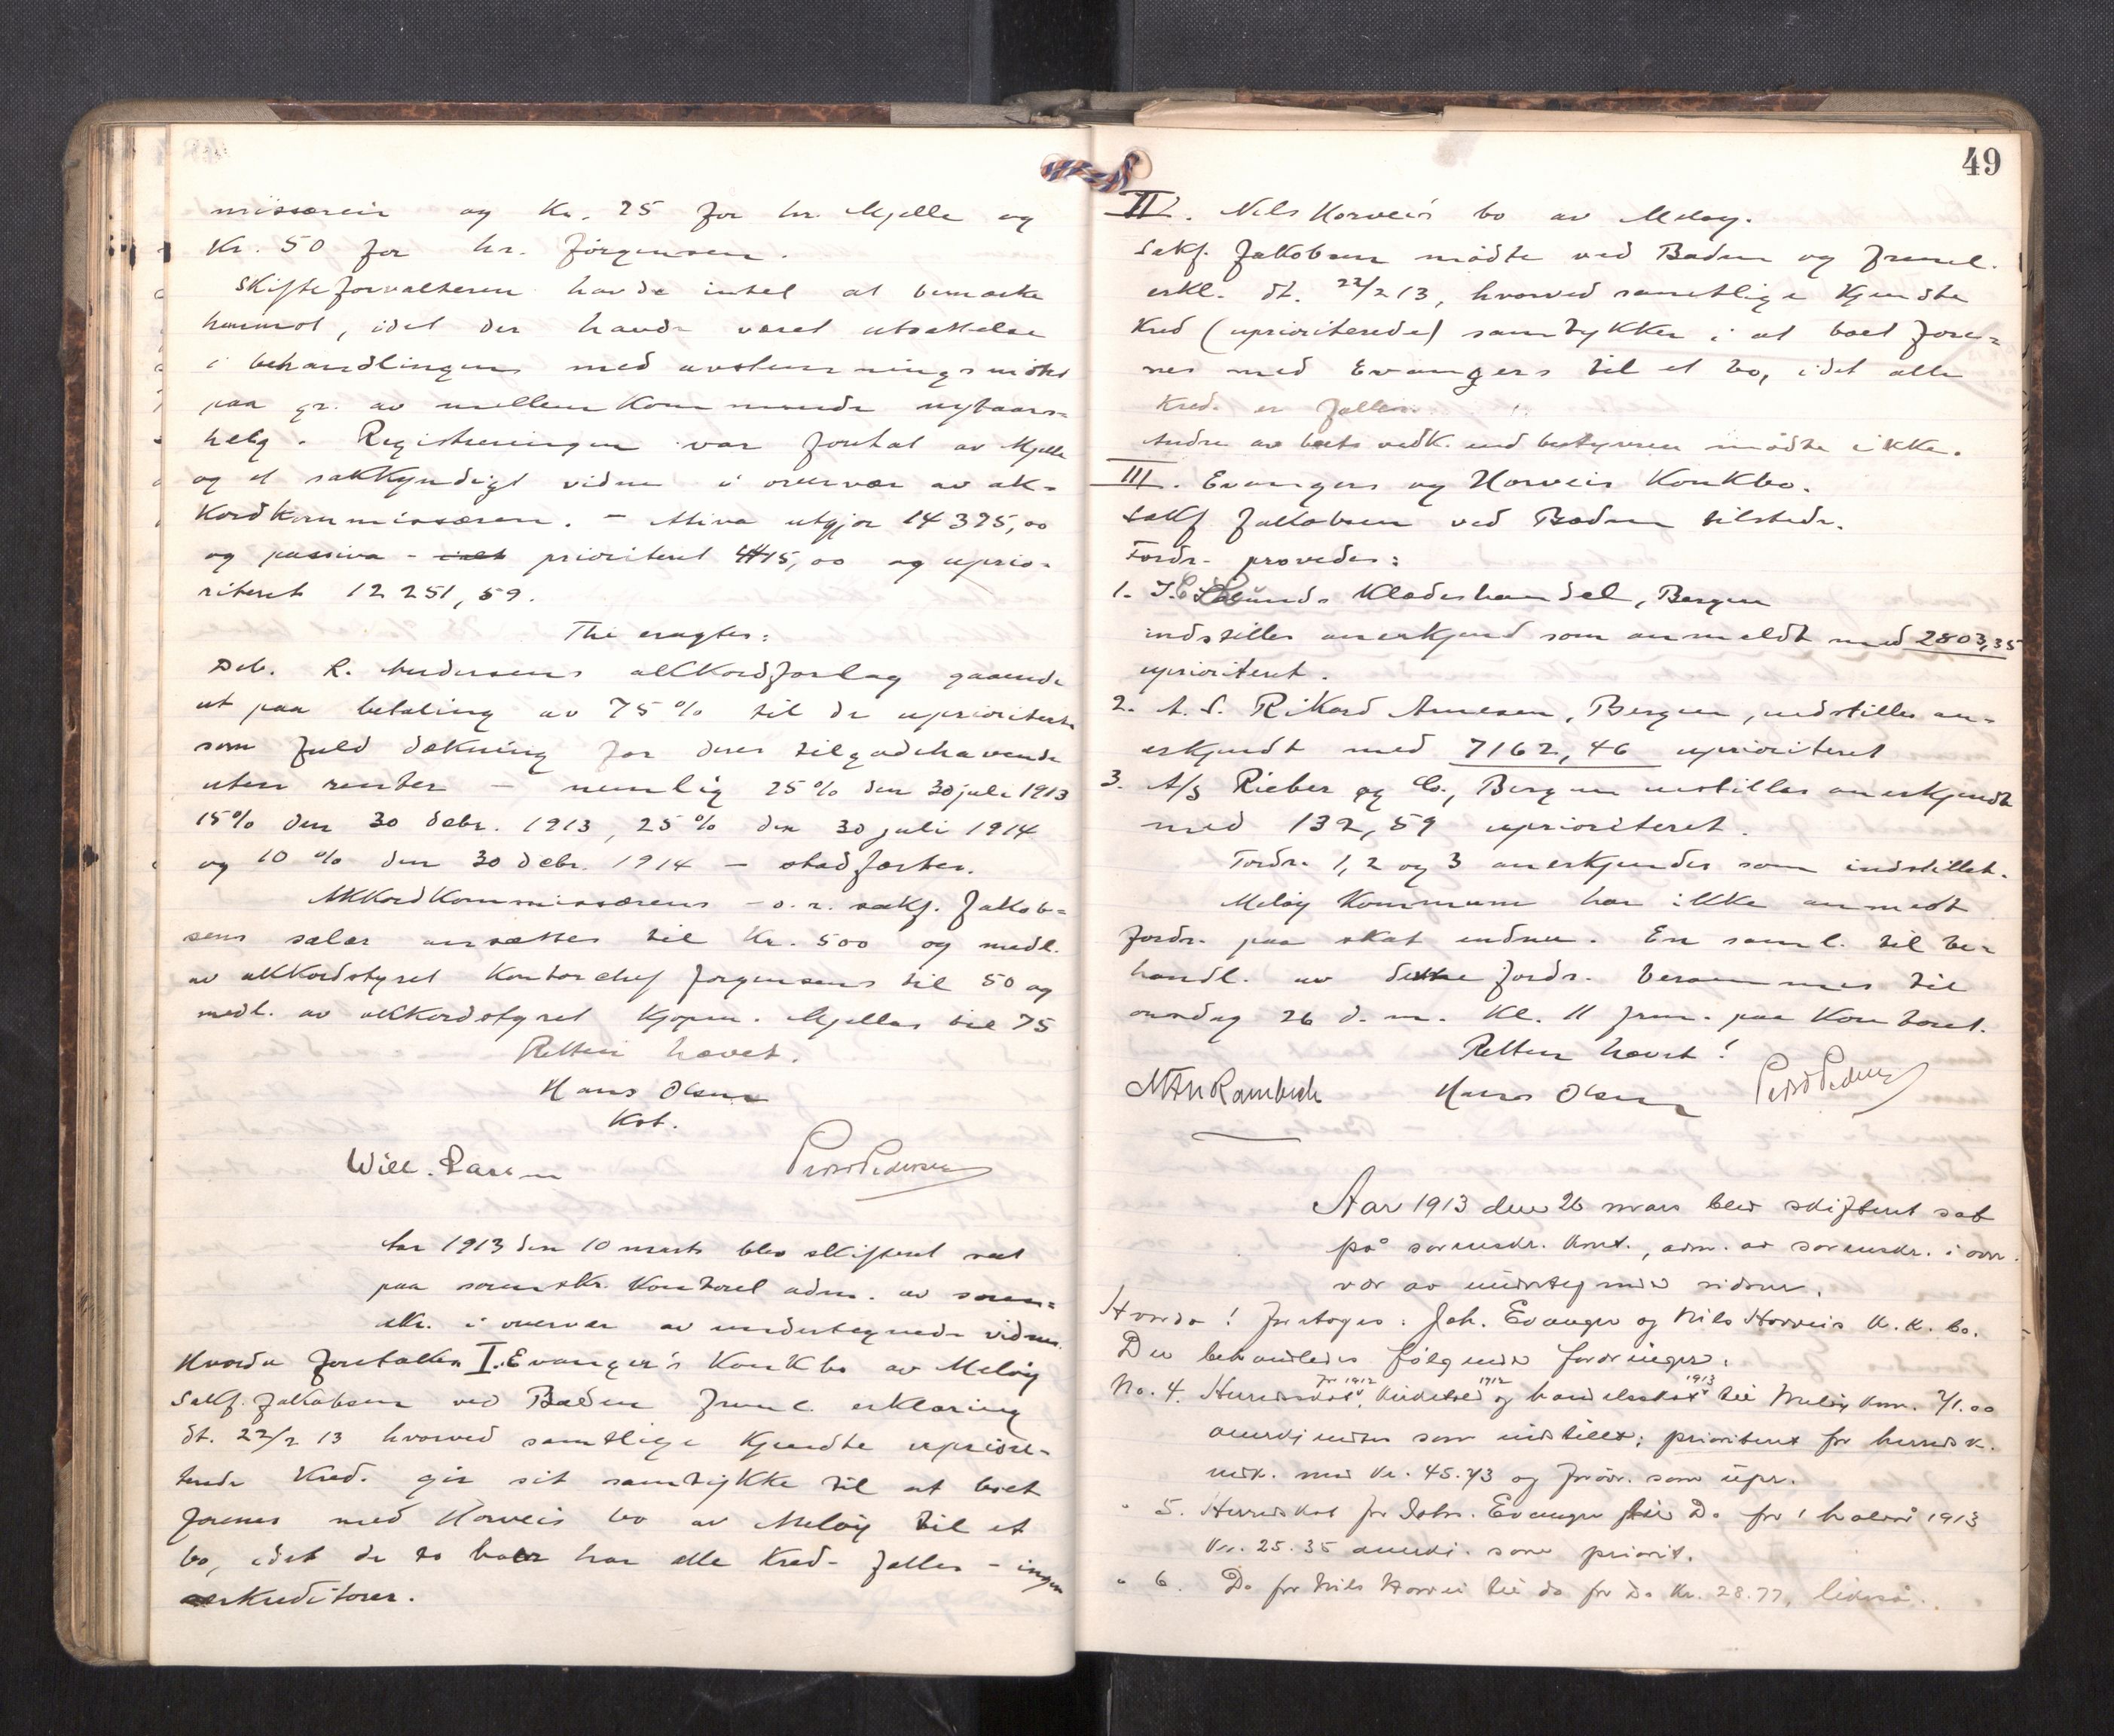 missæren og Kr. 25 for hr. Mjelle og
Kr. 50 for hr. Jörgensen.
Skifteforvalteren havde intet at bemærke
hermot, idet der havde været utsættelse
i behandlingen med avstemningsmöte
paa gr. av mellemkommende nytaars-
helg. Registreringen var foretat av Mjelle
og et sakkyndigt vidne i overvær av ak-
kordkommissæren. - Aktiva utgjör 14 375,00
og passiva - prioritert 4415,00 og uprio-
riteret 12 251,59.
Thi eragtes:
Deb. R. Andersens akkordforlag gaaende
ut paa betaling av 75% til de uprioriterte
som fuld dækning for deres tilgodehavende
uten renter - nemlig 25% den 30 juli 1913
15% den 30 debr. 1913, 25% den 30 juli 1914
og 10% den 30 debr. 1914 - stadfæstes.
Akkordkommissærens - o.r. sakf. Jakob-
sens salær ansættes til Kr. 500 og medl.
av akkordstyret Kontorchef Jørgensens til 50 og
medl. av akkordstyret kjøpm. Mjelles til 75
Retten hævet.
Hans Olsen
Kst.
Will. Larsen Peder Pedersen
Aar 1913 den 10 marts blev skifteret sat
paa sorenskr. kontoret adm. av soren-
skr. i overvær av undertegnede vidner.
Hvorda foretokes I. Evanger's Konkbo av Meløy
Sakf. Jakobsen ved Baden freml. erklæring
dt. 22/2 13 hvorved samtlige kjendte upriori-
terede Kred. gir sit samtykke til at boet
forenes med Horveis bo av Meløy til et
bo, idet de to boer har alle Kred. felles - ingen
særkreditorer.
49
II. Nils Horveis bo av Meløy.
Sakf. Jakobsen mødte ved Baden og freml.
erkl. dt. 22/2 13, hvorved samtlige kjendte
Kred (uprioriterede) samtykker i at boet fore-
nes med Evangers til et bo, idet alle
Kred. er felles.
Andre av boets vedk. end bestyreren mødte ikke.
III. Evangers og Horveis Konkbo.
Sakf Jakobsen ved Baden tilstede.
Fordr. prøvedes:
1. J. C. Lunds Klædeshandel, Bergen
indstilles anerkjend som anmeldt med 2803,35
uprioritert.
2. A. S. Rikard Arnesen, Bergen, indstilles an-
erkjendt med 7162,46 uprioriteret
3. A/S Rieber og Co., Bergen instilles anerkjendt
med 132,59 uprioriteret.
Fordr. 1, 2 og 3 anerkjendes som indstillet.
Meløy Kommune har ikke anmeldt
fordr. paa skat endnu. En saml. til be-
handl. av denne fordr. berammes til
onsdag 26 d. m. Kl. 11 form. paa Kontoret.
Retten hævet!
Hans Olsen Peder Pedersen
Aar 1913 den 26 mars blev skifteret sat
på sorenskr. kont., adm. av sorenskr. i over-
vær av undertegnede vidner.
Hvorda! foretoges: Joh. Evanger og Nils Horveis K. K. bo.
Der behandledes følgende fordringer:
No. 4. Herredsskat for 1912, 1912 og handelsskat 1913 til Meløy kom. 71.00
anerkjendes som indstillet; prioritert for herredsk.
vedk. med kr. 45.43 og forøvr. som upr.
" 5. Herredskat for Johs. Evanger til Do for 1 halvår 1913
Kr. 25.35 anerkj. som priorit.
" 6. Do for Nils Horvei til do for Do Kr. 28.77, likeså.